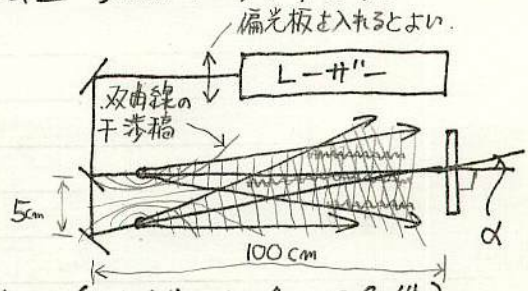 偏光板を入れるとよい.
レーザー
双曲線の
干渉稿
5cm
100 cm
α